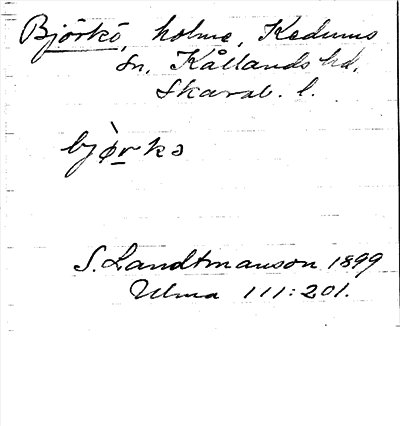 Björkö, holme, Kedums
sn, Kållands hd,
Skarab. l.
bjø̀rkə
S. Landtmanson 1899
Ulma 111:201.